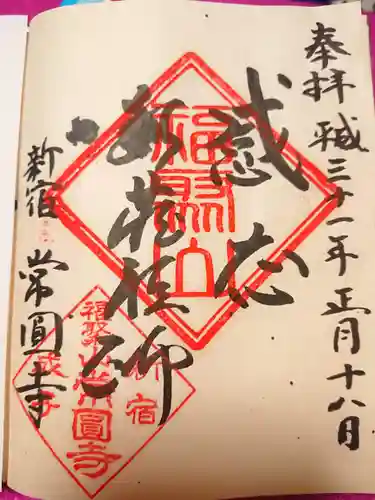 奉拝 平成三十一年 正月十八日
感応
福聚山
新宿 常圓寺
新宿
福聚山常圓寺
成子